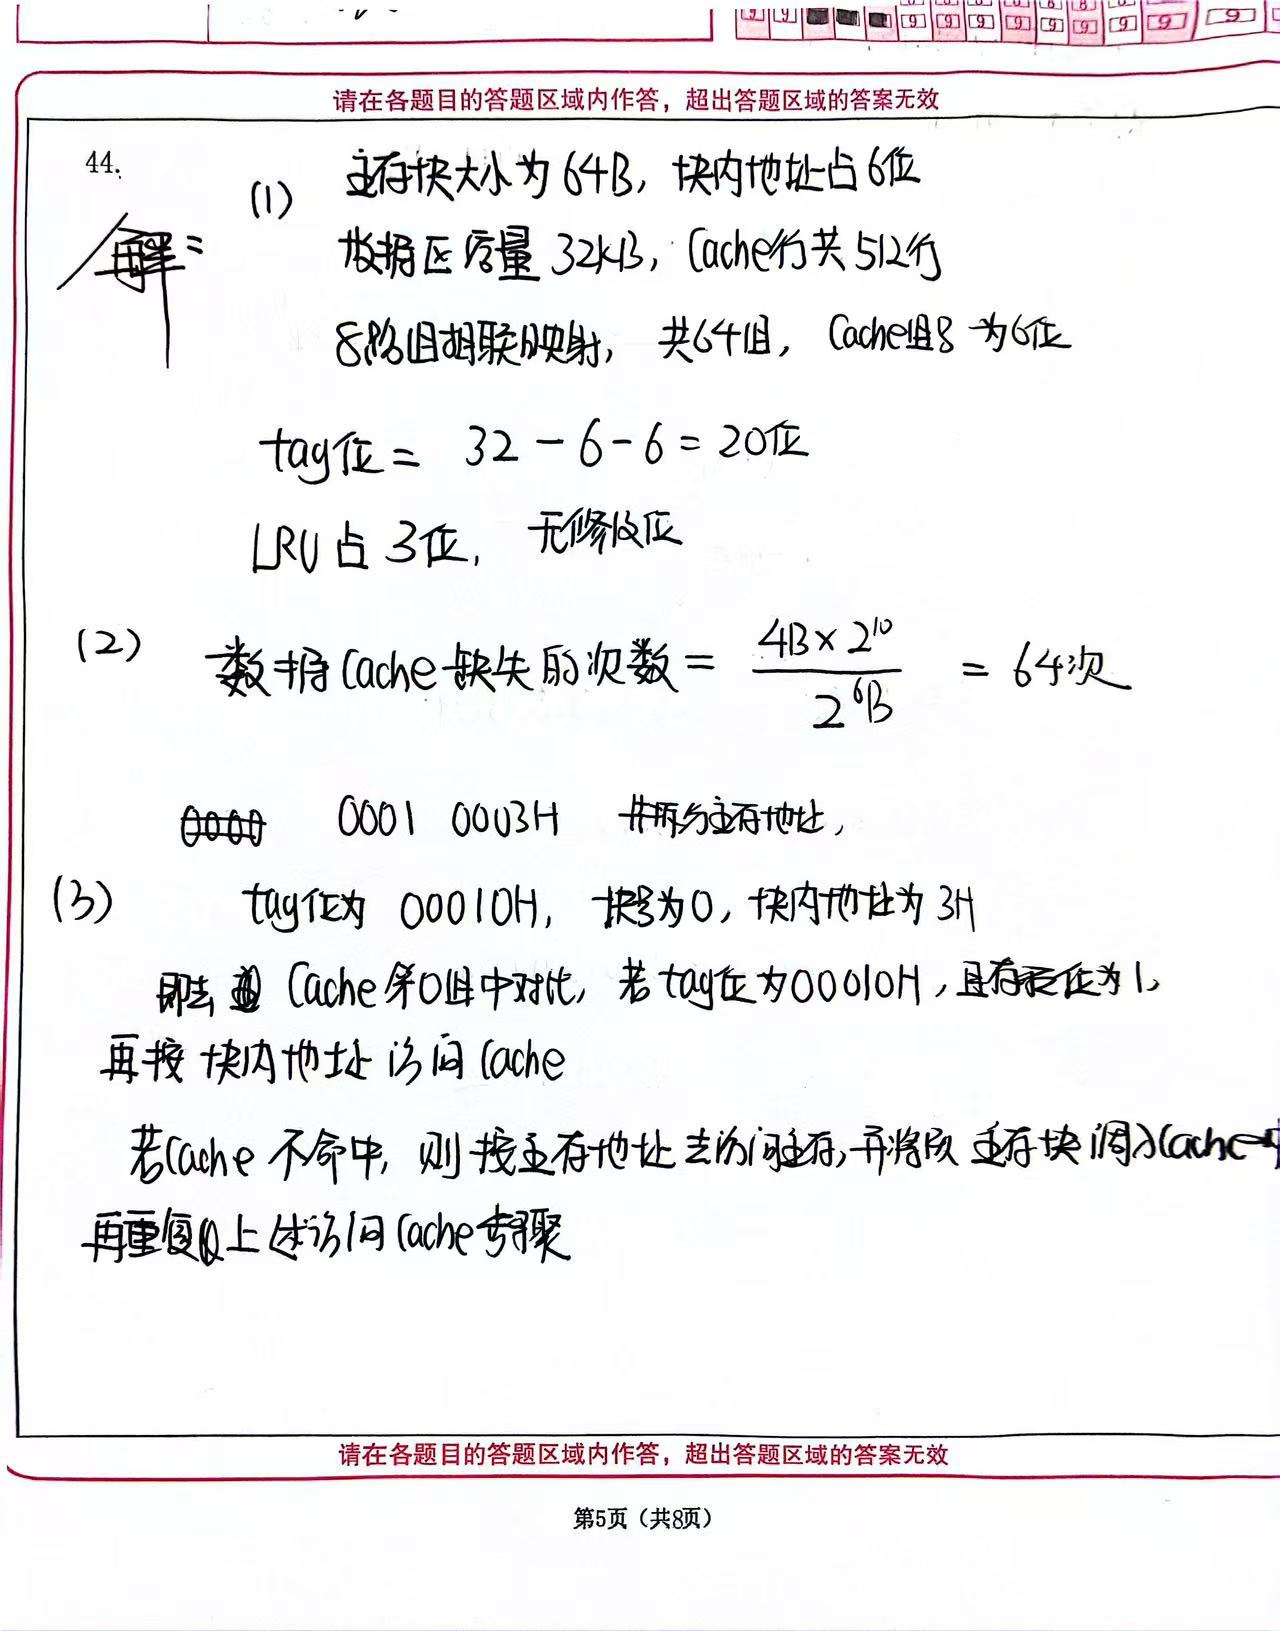 9 9 9 9 9 9 9 9 9 9
请在各题目的答题区域内作答，超出答题区域的答案无效
44.
解：
(1) 主存块大小为64B，块内地址占6位
数据区容量 32KB，Cache行共512行
8路组相联映射，共64组，Cache组号为6位
tag位 = 32-6-6=20位
LRU占3位，无修改位
(2) 数据Cache缺失的次数 = 4B×2^10 / 2^6B = 64次
0000 0001 0003H 拆分主存地址，
(3) tag位为 00010H，块号为0，块内地址为3H
即去 Cache第0组中对比，若tag位为00010H，且有效位为1，
再按块内地址访问Cache
若Cache不命中，则按主存地址去访问主存，并将该主存块调入Cache中
再重复上述访问Cache步骤
请在各题目的答题区域内作答，超出答题区域的答案无效
第5页（共8页）